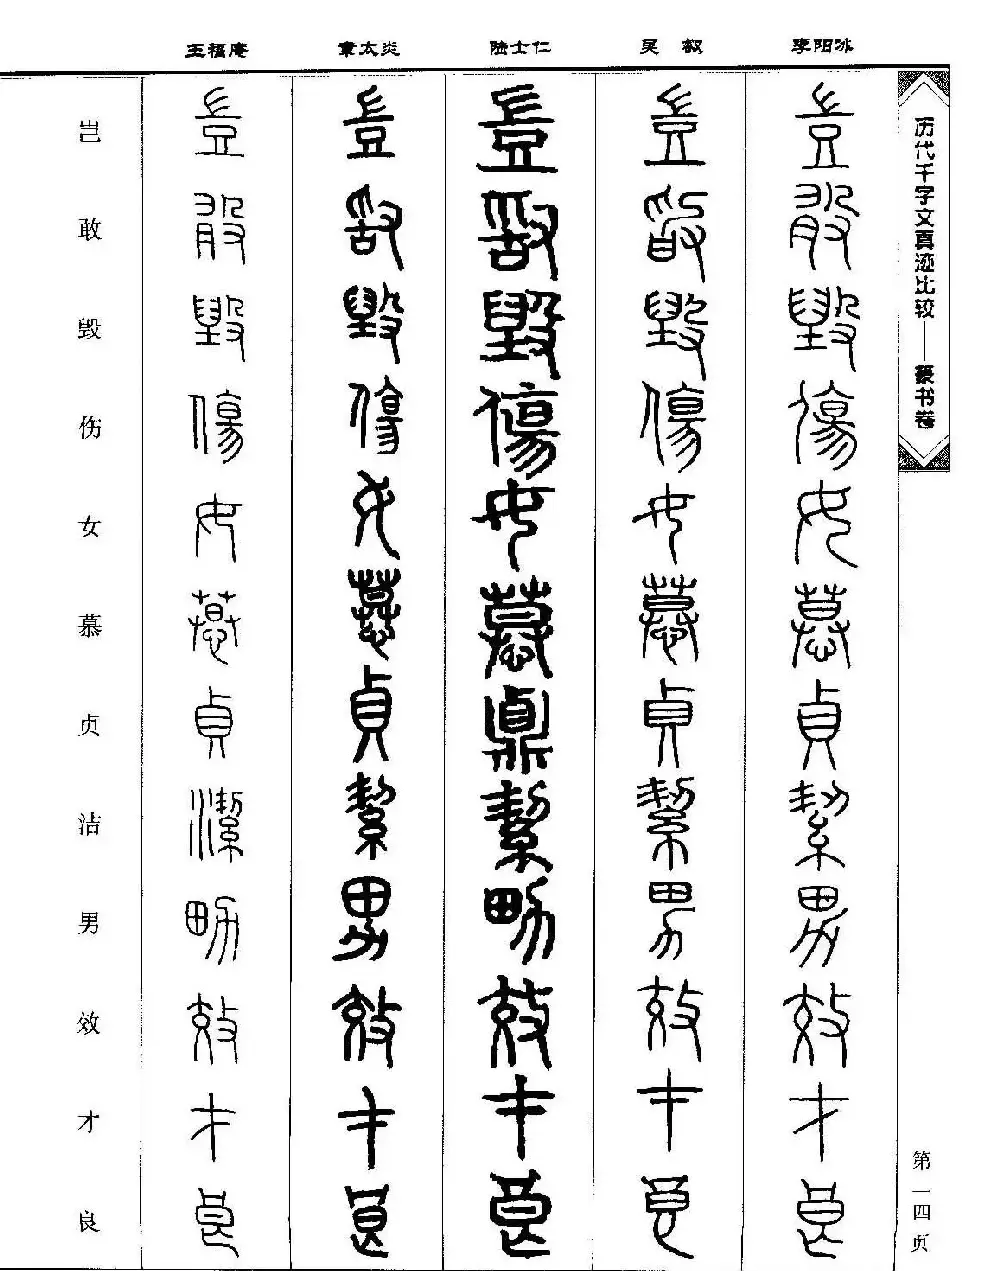 历代千字文真迹比较——篆书卷
第一四页
李阳冰
豈敢毀傷女慕貞絜男效才良
吴叡
豈敢毀傷女慕貞絜男效才良
陆士仁
豈敢毀傷女慕貞絜男效才良
章太炎
豈敢毀傷女慕貞絜男效才良
王福庵
豈敢毀傷女慕貞潔男效才良
岂敢毁伤女慕贞洁男效才良